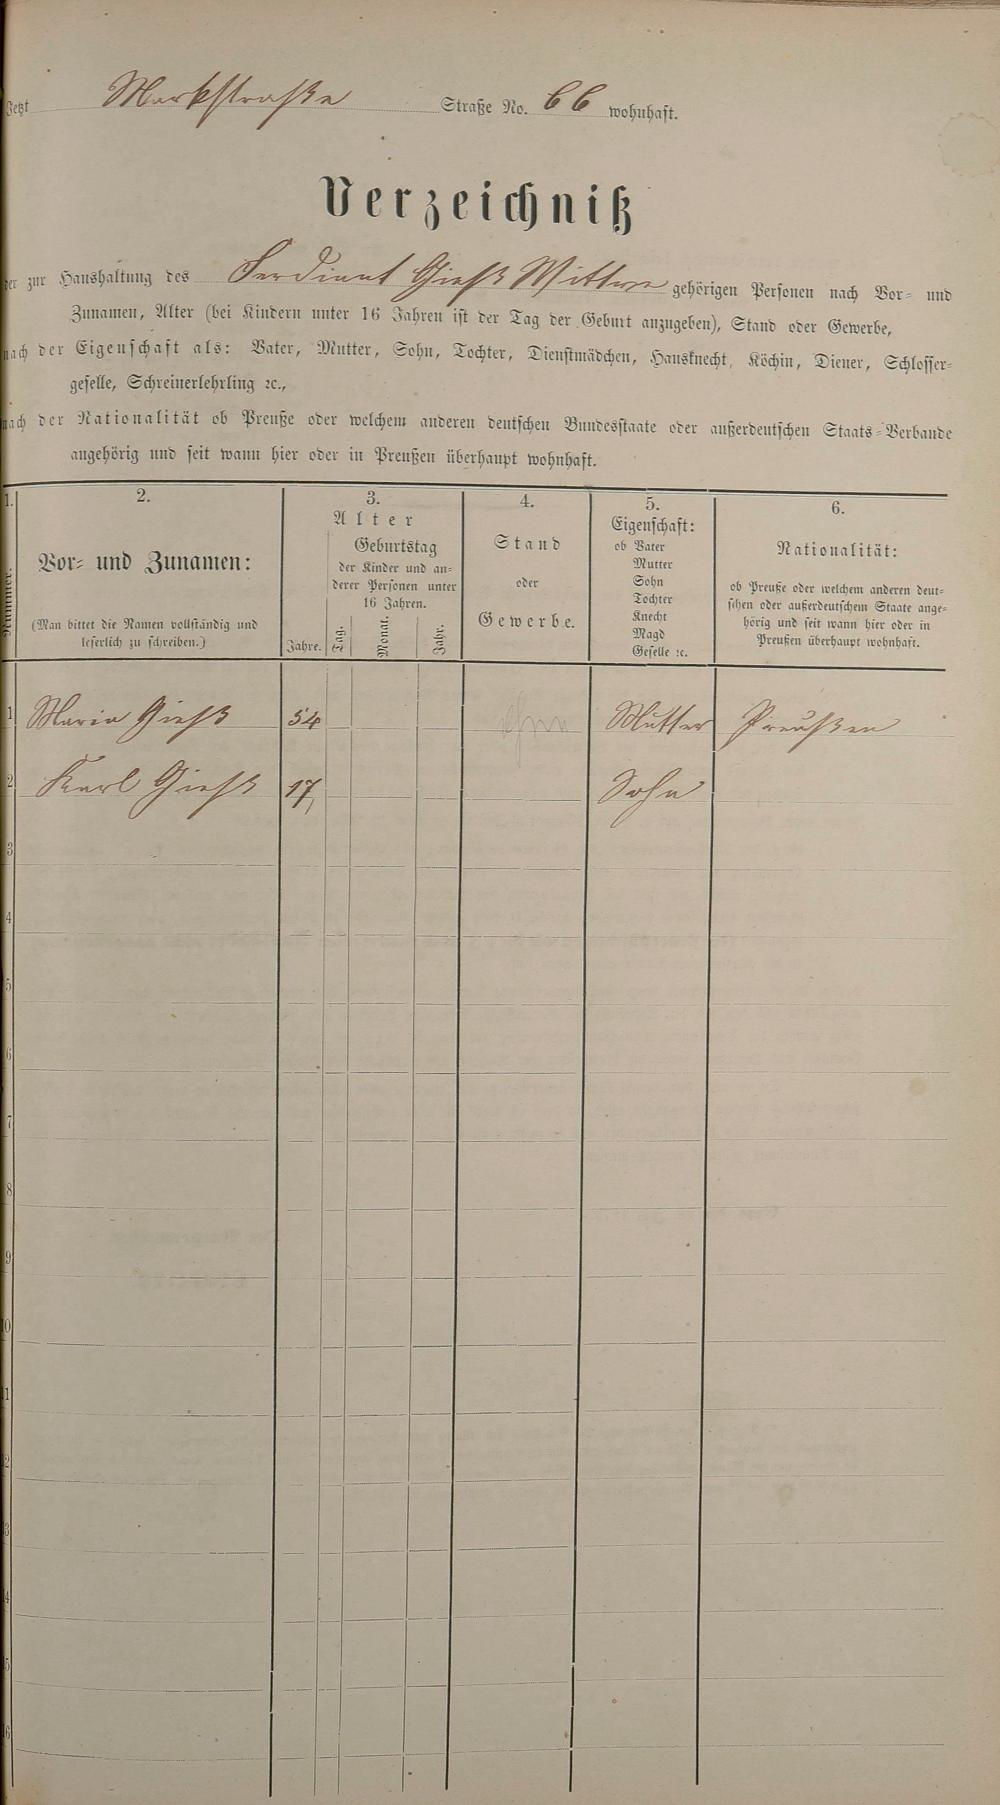 Jetzt Markstraße Straße No. 66 wohnhaft.
Verzeichniß
der zur Haushaltung des Ferdinant Gieß Wittwe gehörigen Personen nach Vor- und
Zunamen, Alter (bei Kindern unter 16 Jahren ist der Tag der Geburt anzugeben), Stand oder Gewerbe,
nach der Eigenschaft als: Vater, Mutter, Sohn, Tochter, Dienstmädchen, Hausknecht, Köchin, Diener, Schlosser-
geselle, Schreinerlehrling ꝛc.,
nach der Nationalität ob Preuße oder welchem anderen deutschen Bundesstaate oder außerdeutschen Staats-Verbande
angehörig und seit wann hier oder in Preußen überhaupt wohnhaft.
1. 2. 3. 4. 5. 6.
Nummer.
Vor- und Zunamen:
(Man bittet die Namen vollständig und
leserlich zu schreiben.)
Alter
Jahre.
Geburtstag
der Kinder und an-
derer Personen unter
16 Jahren.
Tag. Monat. Jahr.
Stand
oder
Gewerbe.
Eigenschaft:
ob Vater
Mutter
Sohn
Tochter
Knecht
Magd
Geselle ꝛc.
Nationalität:
ob Preuße oder welchem anderen deut-
schen oder außerdeutschem Staate ange-
hörig und seit wann hier oder in
Preußen überhaupt wohnhaft.
1 Maria Gieß 54 Mutter Preußen
2 Karl Gieß 17, Sohn
3
4
5
6
7
8
9
10
11
12
13
14
15
16